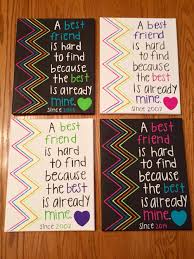 A best
friend
is hard
to find
because
the best
is already
mine.
since 2002
A best
friend
is hard
to find
because
the best
is already
mine.
A best
friend
is hard
to find
because
the best
is already
mine.
since 2002
A best
friend
is hard
to find
because
the best
is already
mine.
since